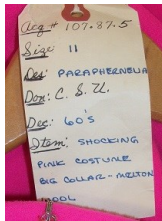 Acq # 107.87.5
Size 11
Des: PARAPHERNELIA
Don: C. S. U.
Dec: 60'S
Item: SHOCKING
PINK COSTUME
BIG COLLAR - MELTON
WOOL